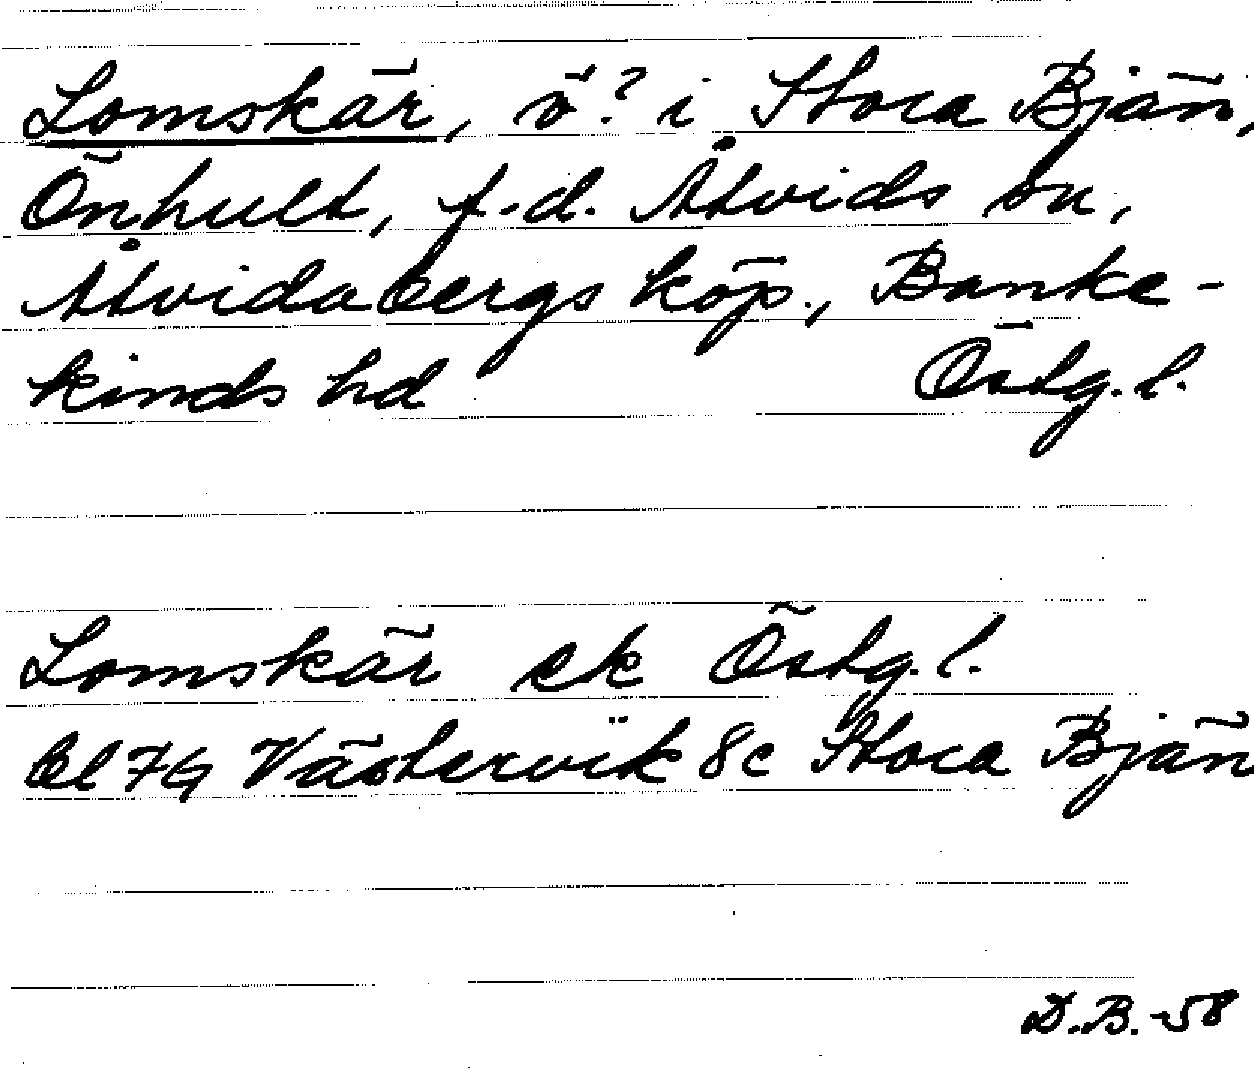 Lomskär, ö? i Stora Bjän,
Önhult, f.d. Åtvids sn,
Åtvidabergs köp., Banke-
kinds hd Östg.l.
Lomskär ek Östg.l.
Bl 7G Västervik 8c Stora Bjän
D.B. -58